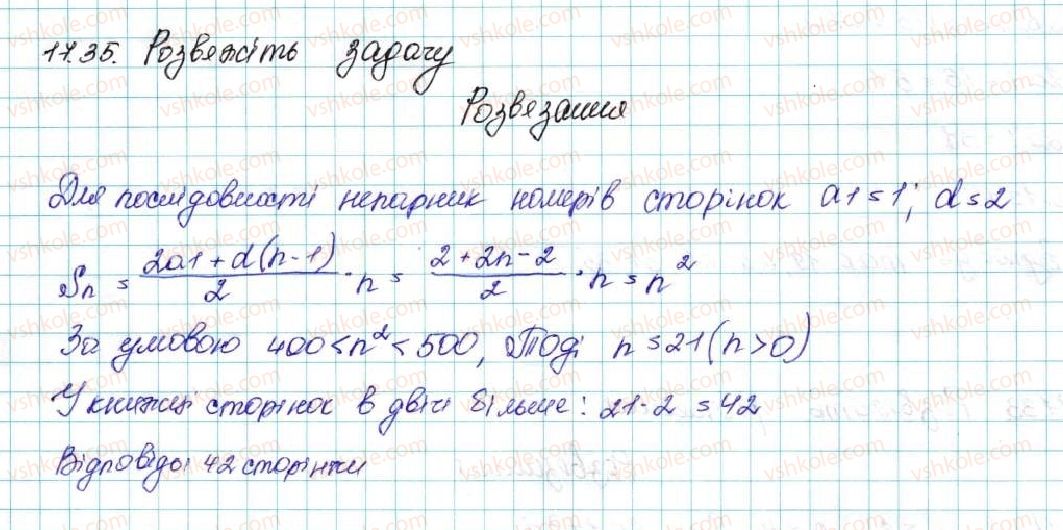 17.35. Розвяжіть задачу
Розвязання
Для послідовності непарник номерів сторінок a1 = 1; d = 2
Sn = (2a1 + d(n-1))/2 · n = (2 + 2n - 2)/2 · n = n²
За умовою 400 < n² < 500, Тоді n = 21 (n > 0)
У книжці сторінок в двічі більше: 21 · 2 = 42
Відповідь: 42 сторінки